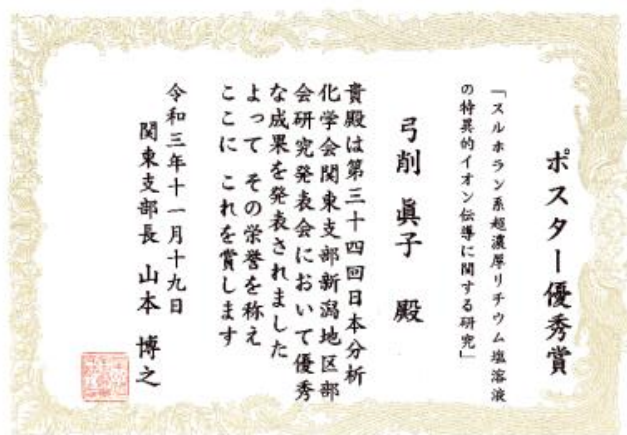 ポスター優秀賞
「スルホラン系超濃厚リチウム塩溶液
の特異的イオン伝導に関する研究」
弓削 眞子 殿
貴殿は第三十四回日本分析
化学会関東支部新潟地区部
会研究発表会において優秀
な成果を発表されました
よって その栄誉を称え
ここに これを賞します
令和三年十一月十九日
関東支部長 山本 博之